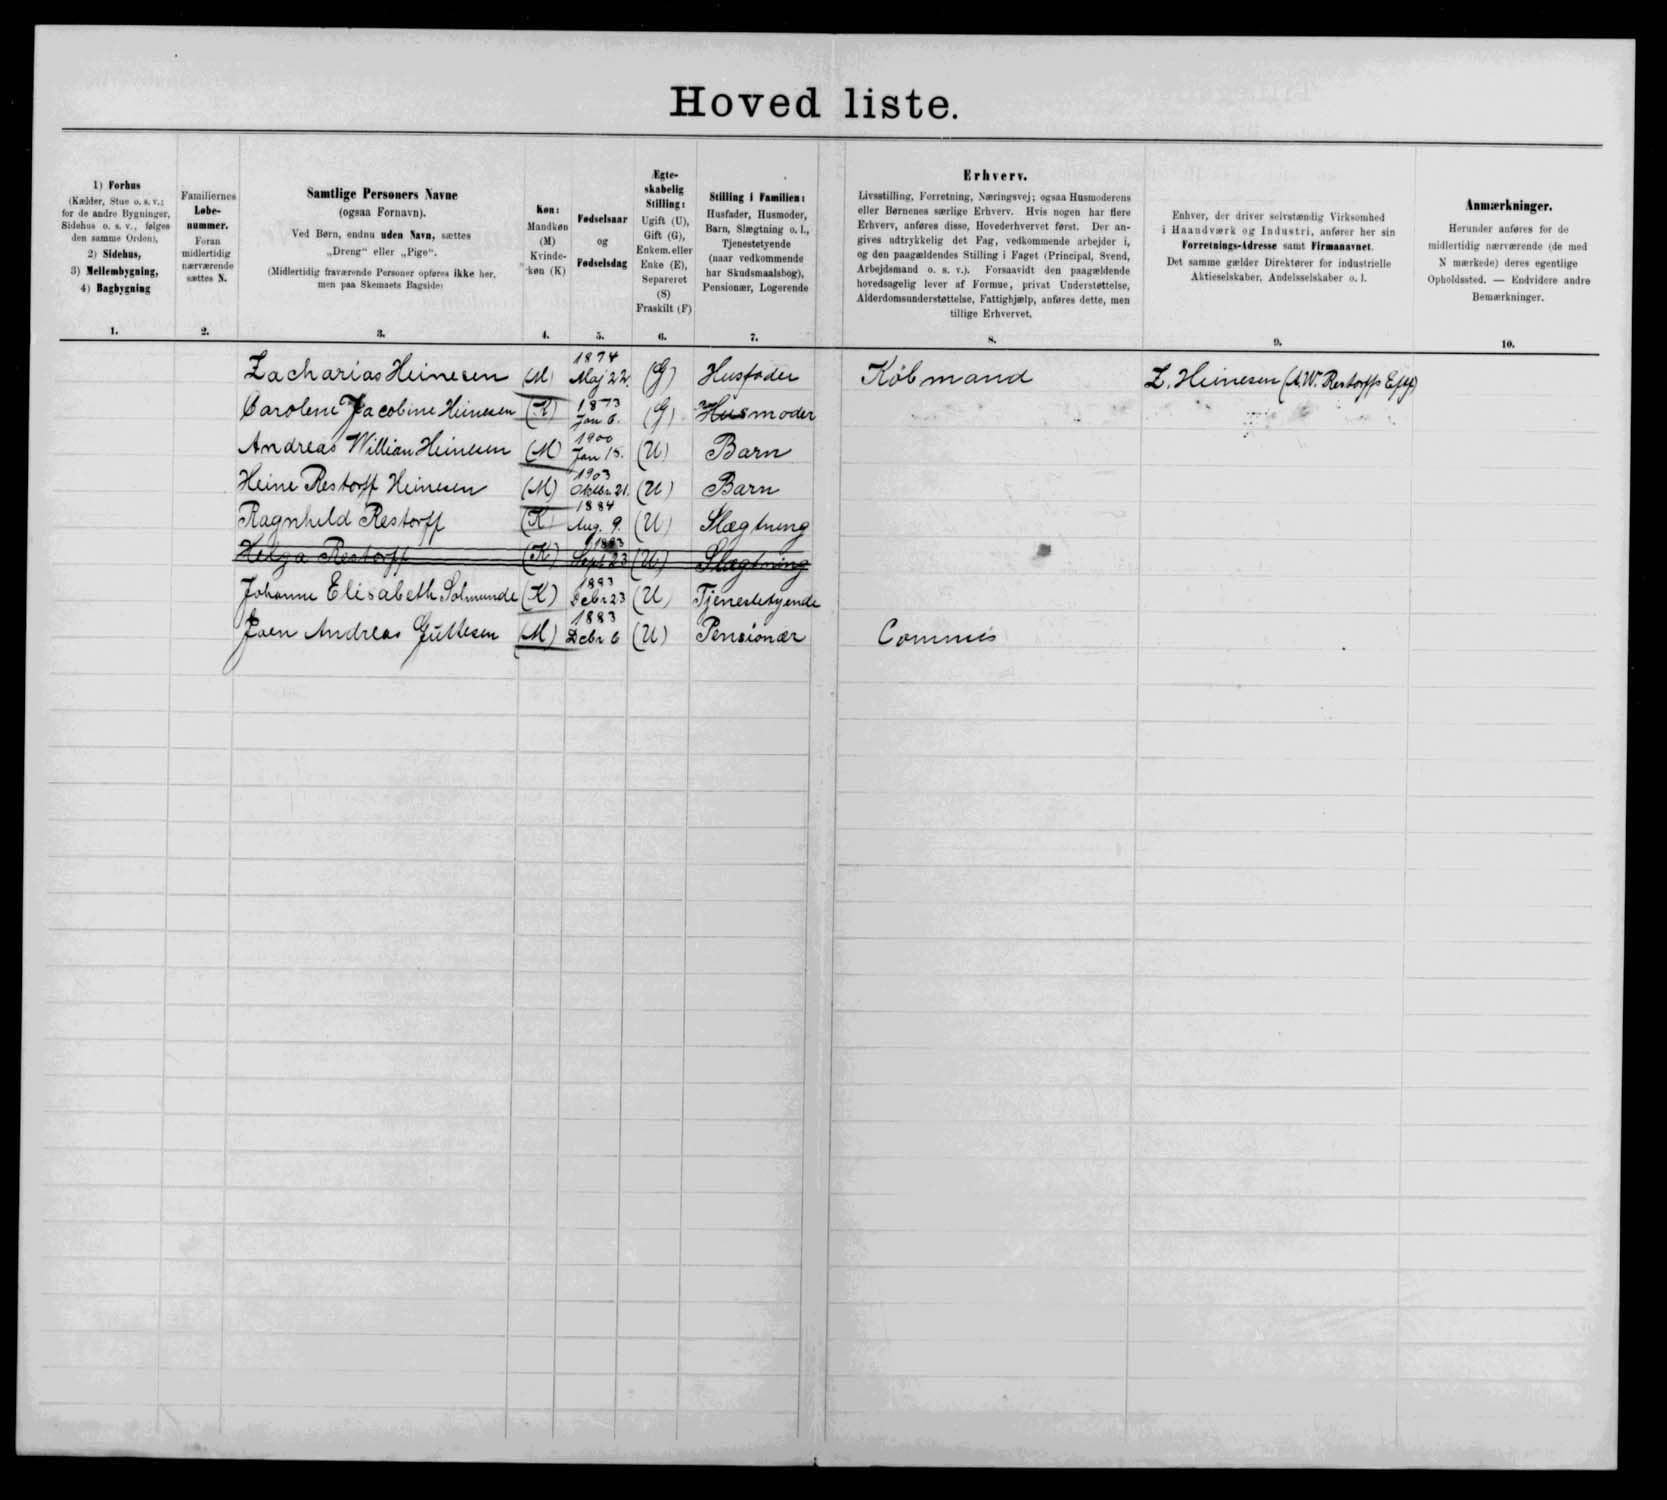 Hoved liste.
1) Forhus
(Kælder, Stue o. s. v.;
for de andre Bygninger,
Sidehus o. s. v., følges
den samme Orden),
2) Sidehus,
3) Mellembygning,
4) Bagbygning
1.
Familiernes
Løbe-
nummer.
Foran
midlertidig
nærværende
sættes N.
2.
Samtlige Personers Navne
(ogsaa Fornavn).
Ved Børn, endnu uden Navn, sættes
„Dreng“ eller „Pige“.
(Midlertidig fraværende Personer opføres ikke her,
men paa Skemaets Bagside)
3.
Køn:
Mandkøn
(M)
Kvinde-
køn (K)
4.
Fødselsaar
og
Fødselsdag
5.
Ægte-
skabelig
Stilling:
Ugift (U),
Gift (G),
Enkem. eller
Enke (E),
Separeret
(S)
Fraskilt (F)
6.
Stilling i Familien:
Husfader, Husmoder,
Barn, Slægtning o. l.,
Tjenestetyende
(naar vedkommende
har Skudsmaalsbog),
Pensionær, Logerende
7.
Erhverv.
Livsstilling, Forretning, Næringsvej; ogsaa Husmoderens
eller Børnenes særlige Erhverv. Hvis nogen har flere
Erhverv, anføres disse, Hovederhvervet først. Der an-
gives udtrykkelig det Fag, vedkommende arbejder i,
og den paagældendes Stilling i Faget (Principal, Svend,
Arbejdsmand o. s. v.). Forsaavidt den paagældende
hovedsagelig lever af Formue, privat Understøttelse,
Alderdomsunderstøttelse, Fattighjælp, anføres dette, men
tillige Erhvervet.
8.
Enhver, der driver selvstændig Virksomhed
i Haandværk og Industri, anfører her sin
Forretnings-Adresse samt Firmanavnet.
Det samme gælder Direktører for industrielle
Aktieselskaber, Andelsselskaber o. l.
9.
Anmærkninger.
Herunder anføres for de
midlertidig nærværende (de med
N mærkede) deres egentlige
Opholdssted. — Endvidere andre
Bemærkninger.
10.
Zacharias Heinesen (M) 1874 Maj 22. (G) Husfader Købmand Z. Heinesen (A.W. Restorffs Eftf)
Caroline Jacobine Heinesen (K) 1873 Jan 6. (G) Husmoder
Andreas William Heinesen (M) 1900 Jan 15. (U) Barn
Heine Restorff Heinesen (M) 1903 Oktbr 21. (U) Barn
Ragnhild Restorff (K) 1884 Aug. 9. (U) Slægtning
Helga Restorff (K) Sept 23 (U) Slægtning
Johanne Elisabeth Solmunde (K) 1883 Debr 23 (U) Tjenestetyende
Joen Andreas Guttesen (M) 1883 Debr 6 (U) Pensionær Commis